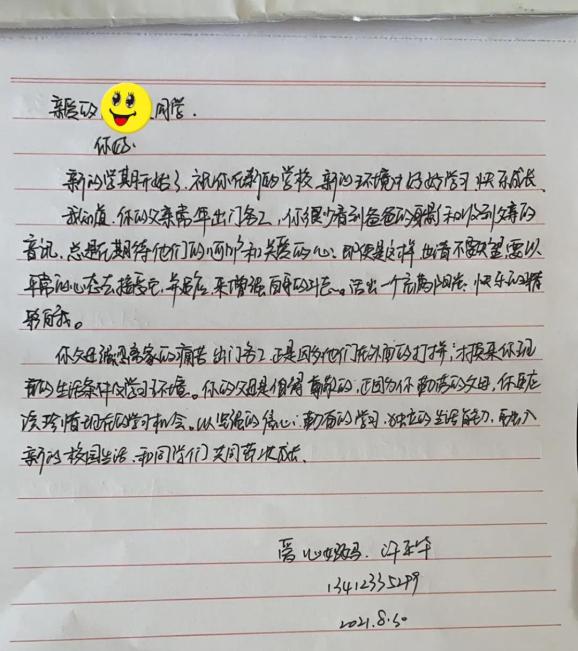 亲爱的 同学.
你好.
新的学期开始了,祝你在新的学校,新的环境中好好学习,快乐成长.
我知道,你的父亲常年出门务工,你很少看到爸爸的身影和收到父亲的
音讯,总是在期待他们的呵护和关爱的心;即使是这样,也请不要失望,要以
平常的心态去接受它,并适应,来增强自身的。活出一个充满阳光,快乐的精
彩自我。
你父母强忍离家的痛苦出门务工,正是因为他们在外面的打拼,才换来你现
有的生活条件及学习环境。你的父母是值得尊敬的,正因为你勤劳的父母,你更应
该珍惜现在的学习机会。以坚强的信心;勤奋的学习,独立的生活能力,融入
新的校园生活,和同学们共同茁壮成长.
爱心妈妈.
13412335299
2021.8.30